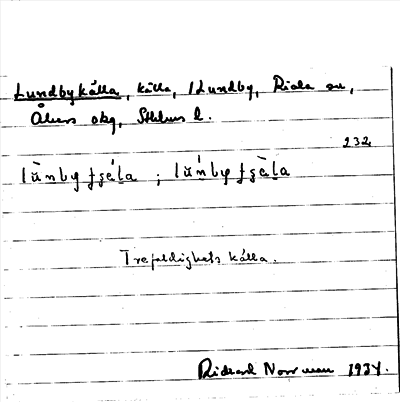 Lundbykälla, källa, i Lundby, Riala sn,
Åkers skg, Sthlms l.
232
lùnby ʈʂɛ́l̯a ; lúnby ʈʂɛ̀l̯a
Trefaldighets källa.
Rickard Norrman 1934.